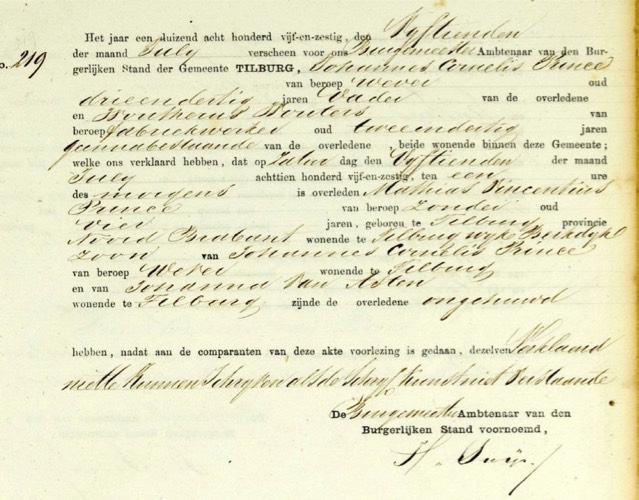 Het jaar een duizend acht honderd vijf-en-zestig, den Vyftienden
der maand July verscheen voor ons Burgemeester Ambtenaar van den Bur-
o. 219 gerlijken Stand der Gemeente TILBURG, Johannes Cornelis Prince
van beroep wever oud
drieendertig jaren Vader van de overledene
en Wouters van
beroep fabriekwerker oud tweeendertig jaren
gannabestaande van de overledene, beide wonende binnen deze Gemeente;
welke ons verklaard hebben, dat op Zatur dag den Vyftienden der maand
July achttien honderd vijf-en-zestig, ten een ure
des morgens is overleden Mathias Vincentius
Prince van beroep zonder oud
vier jaren, geboren te Tilburg provincie
Noord Brabant wonende te Tilburg wyk Berkdyk
zoon van Johannes Cornelis Prince
van beroep Wever wonende te Tilburg
en van Johanna Van Asten
wonende te Tilburg zijnde de overledene ongehuwd
hebben, nadat aan de comparanten van deze akte voorlezing is gedaan, dezelven Verklaard
niet te kunnen Schryven als de Schryf kunst niet Verstaande
De Burgemeester Ambtenaar van den
Burgerlijken Stand voornoemd,